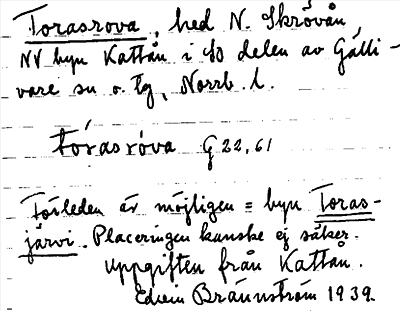 Torasrova, hed N. Skrövån,
NV byn Kattån i SO delen av Gälli-
vare sn o. tg, Norrb. l.
tórasròva G 22,61
Förleden är möjligen = byn Toras-
järvi. Placeringen kanske ej säker.
Uppgiften från Kattån.
Edvin Brännström 1939.